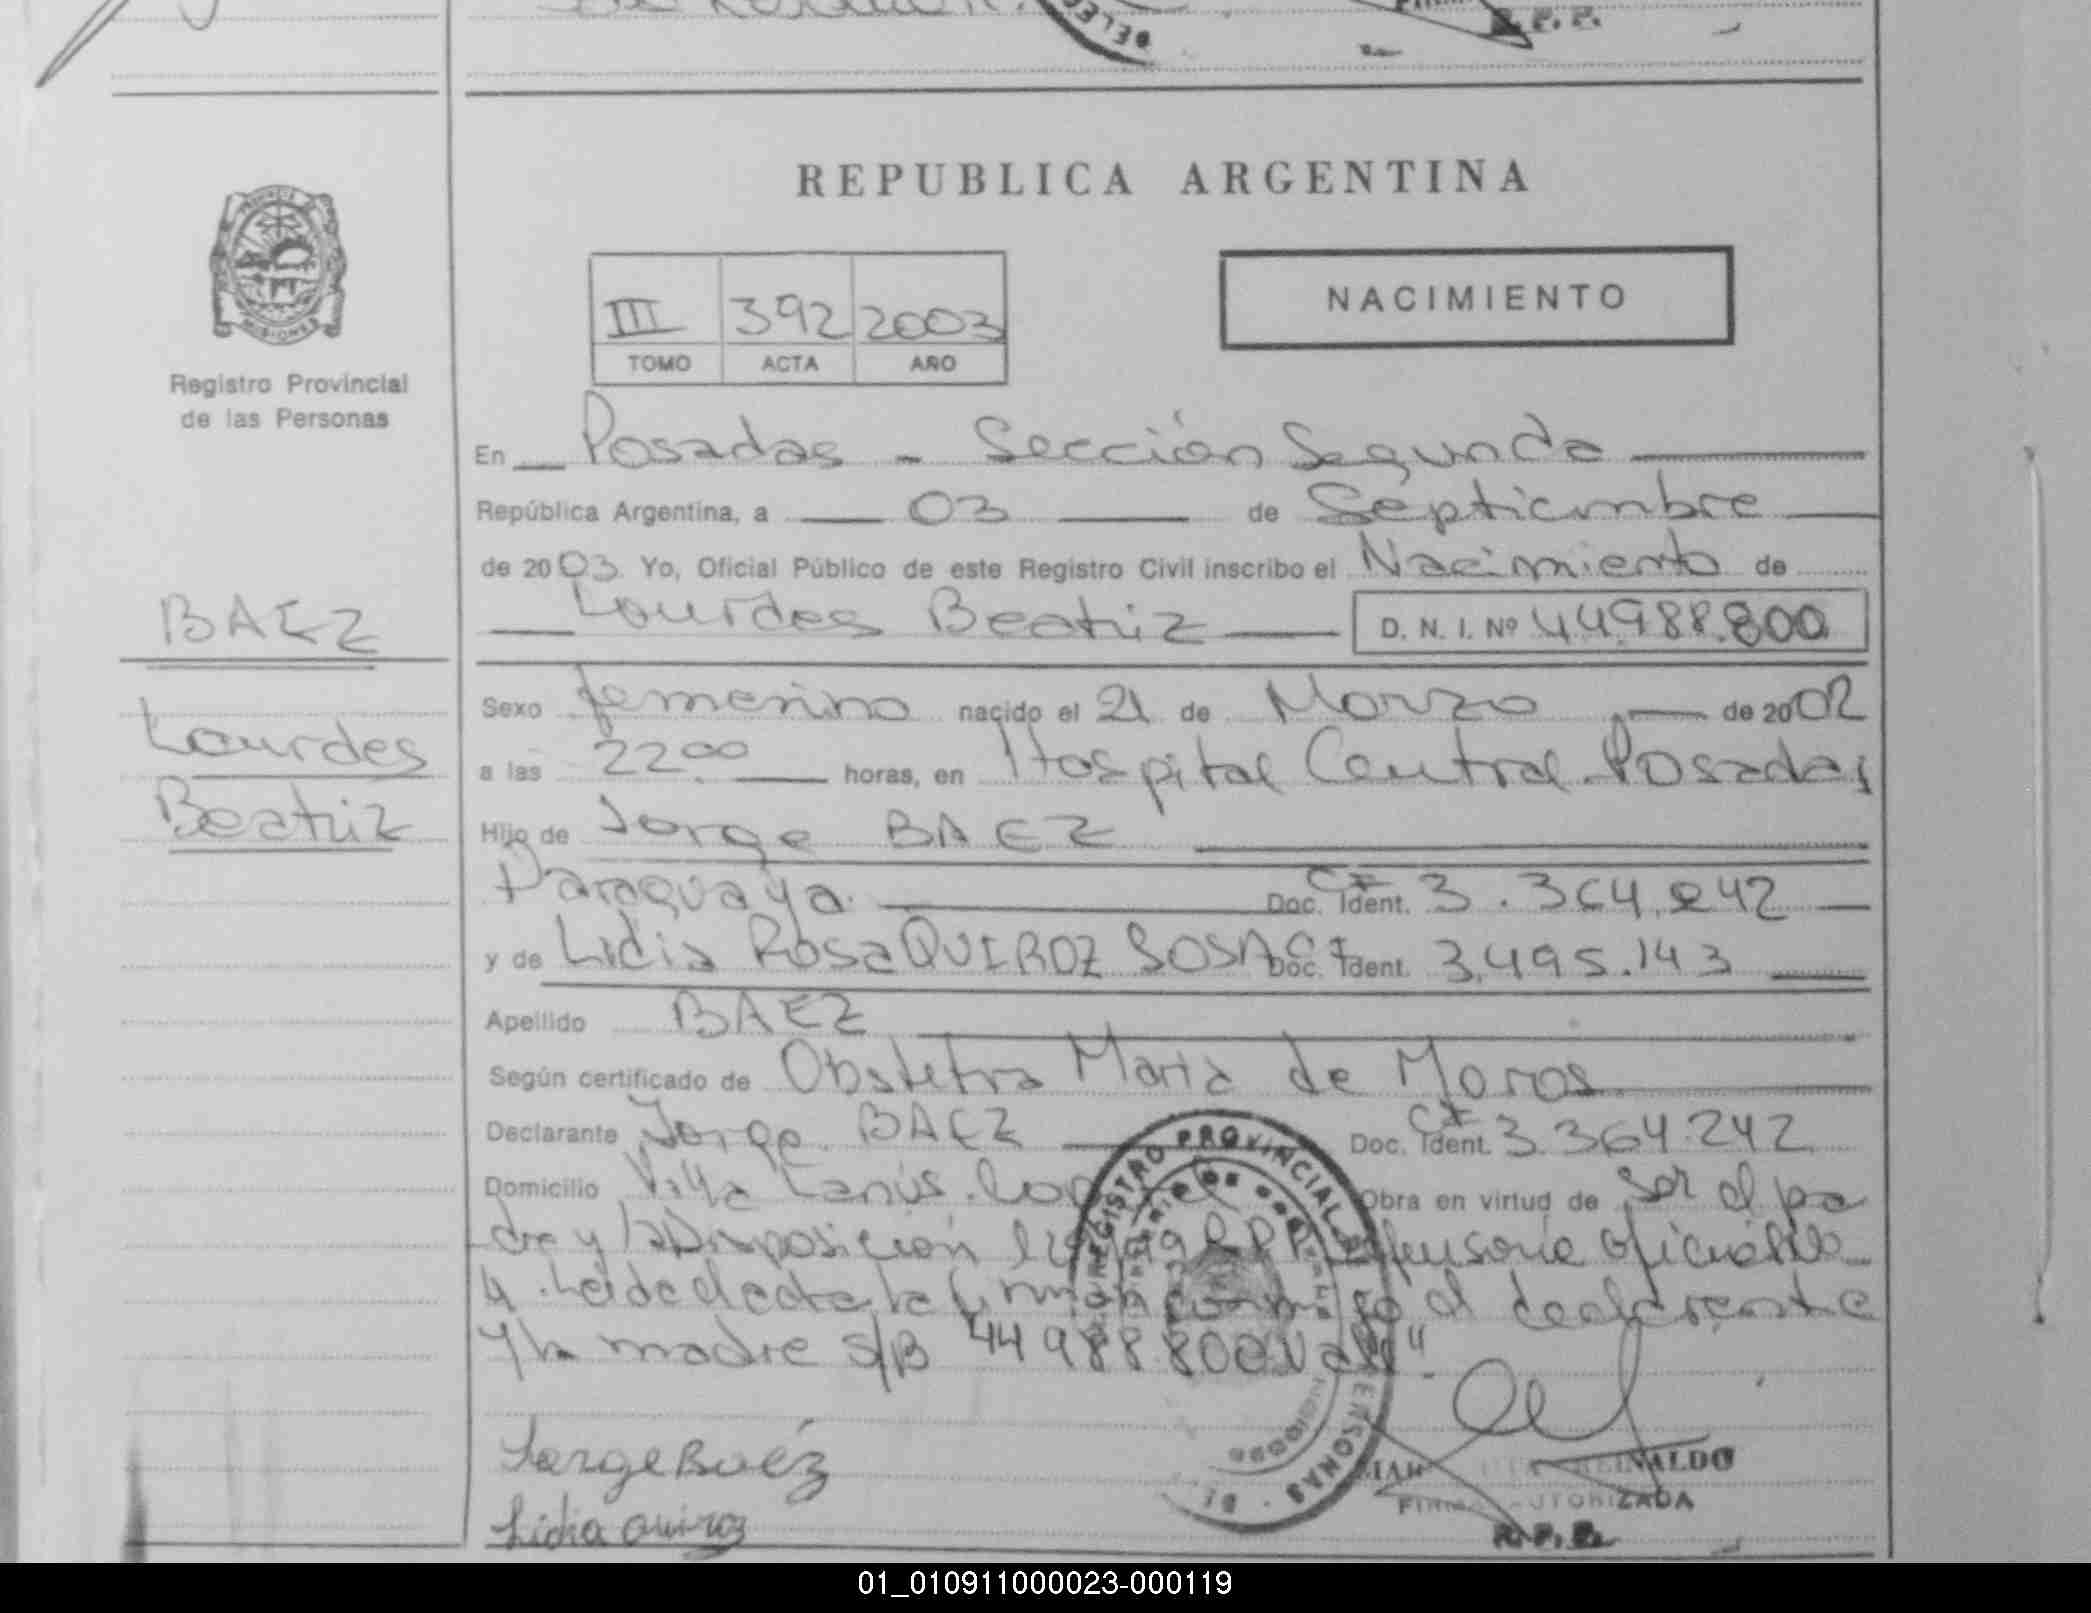 R. P. P.
REPUBLICA ARGENTINA
MISIONES
Registro Provincial
de las Personas
III 392 2003
TOMO ACTA AÑO
NACIMIENTO
En Posadas - Sección Segunda
República Argentina, a 03 de Septiembre
de 2003 Yo, Oficial Público de este Registro Civil inscribo el Nacimiento de
Lourdes Beatriz D. N. I. Nº 44.988.800
BAEZ
Lourdes
Beatriz
Sexo femenino nacido el 21 de Marzo de 2002
a las 22.00 horas, en Hospital Central Posadas
Hijo de Jorge BAEZ
Paraguaya. Doc. Ident. CI 3.364.242
y de Lidia Rosa QUIROZ SOSA Doc. Ident. CI 3.495.143
Apellido BAEZ
Según certificado de Obstetra Maria de
Declarante Jorge BAEZ Doc. Ident. CI 3.364.242
Domicilio Villa Lanús. Obra en virtud de Ser el pa
dre y la Disposición oficial
4. Leida el acta la conmigo el declarante
y la madre s/B "44988800 Vale".
REGISTRO PROVINCIAL DE PERSONAS
Jorge Baéz
Lidia Quiroz
REINALDO
FIRMA AUTORIZADA
R. P. P.
01_010911000023-000119